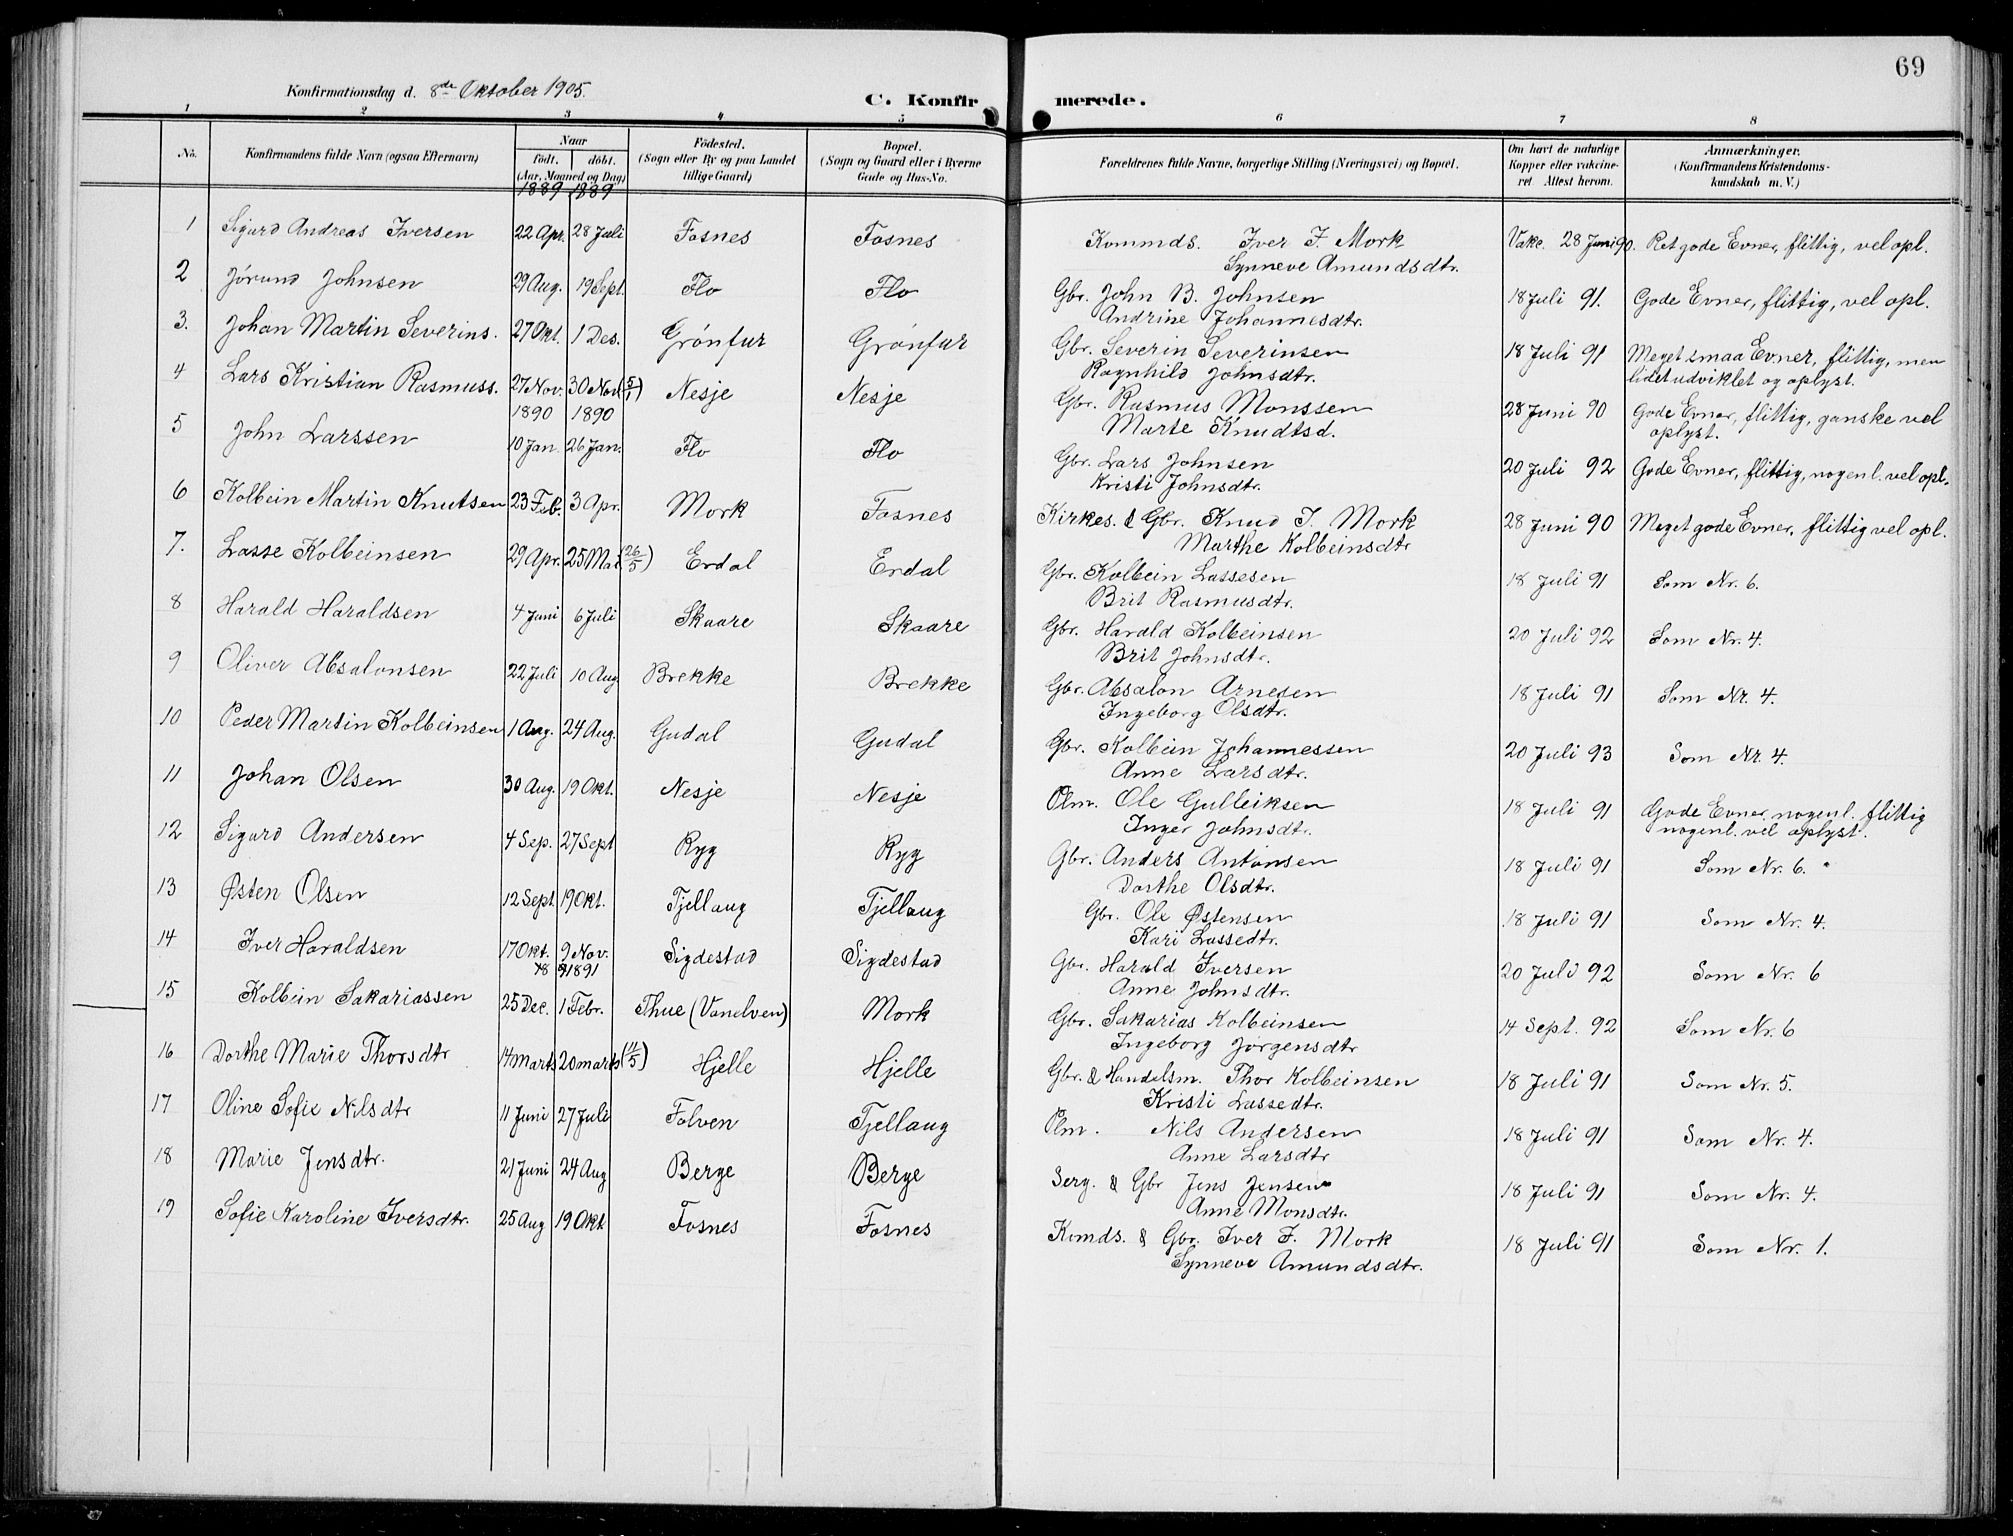 69
Konfirmationsdag d. 8de Oktober 1905.
C. Konfirmerede.
1 2 3 4 5 6 7 8
No. Konfirmandens fulde Navn (ogsaa Efternavn) Naar født. døbt. (Aar, Maaned og Dag) Födested. (Sogn eller By og paa Landet tillige Gaard) Bopæl. (Sogn og Gaard eller i Byerne Gade og Hus-No. Forældrenes fulde Navne, borgerlige Stilling (Næringsvei) og Bopæl. Om havt de naturlige Kopper eller vakcineret Attest herom. Anmærkninger. (Konfirmandens Kristendomskundskab m. V.)
1889 1889
1 Sigurd Andreas Iversen 22 Apr. 28 Juli Fosnes Fosnes Kommds. Iver J. Mork Vakc. 28 Juni 90. Ret gode Evner, flittig, vel opl.
Synneve Amundsdtr.
2 Jørund Johnsen 29 Aug. 19 Sept. Flo Flo Gbr. John B. Johnsen 18 Juli 91. Gode Evner, flittig, vel opl.
Andrine Johannesdtr.
3. Johan Martin Severins. 27 Okt. 1 Des. Grønfur Grønfur Gbr. Severin Severinsen 18 Juli 91 Meget smaa Evner, flittig, men
Ragnhild Johnsdtr. lidet udviklet og oplyst.
4 Lars Kristian Rasmuss. 27 Nov. 30 Nov. (5/1) Nesje Nesje Gbr. Rasmus Monssen 28 Juni 90 Gode Evner, flittig, ganske vel
Marte Knudtsd. oplyst.
1890 1890
5 John Larssen 10 Jan. 26 Jan. Flo Flo Gbr. Lars Johnsen 20 Juli 92 Gode Evner, flittig, nogenl. vel opl.
Kristi Johnsdtr.
6 Kolbein Martin Knutsen 23 Feb. 3 Apr. Mork Fosnes Kirkes. & Gbr. Knud J. Mork 28 Juni 90 Meget gode Evner, flittig vel opl.
Marthe Kolbeinsdtr
7. Lasse Kolbeinsen 29 Apr. 25 Mai (26/5) Erdal Erdal Gbr. Kolbein Lassesen 18 Juli 91 Som Nr. 6.
Brit Rasmusdtr.
8 Harald Haraldsen 4 Juni 6 Juli Skaare Skaare Gbr. Harald Kolbeinsen 20 Juli 92 Som Nr. 4.
Brit Johnsdtr.
9 Oliver Absalonsen 22 Juli 10 Aug Brekke Brekke Gbr. Absalon Arnesen 18 Juli 91 Som Nr. 4.
Ingeborg Olsdtr.
10 Peder Martin Kolbeinsen 1 Aug. 24 Aug. Gudal Gudal Gbr. Kolbein Johannessen 20 Juli 93 Som Nr. 4.
Anne Larsdtr.
11 Johan Olsen 30 Aug. 19 Okt. Nesje Nesje Plm. Ole Gulleiksen 18 Juli 91 Gode Evner, nogenl. flittig
Inger Johnsdtr. nogenl. vel oplyst.
12 Sigurd Andersen 4 Sep. 27 Sept Ryg Ryg Gbr. Anders Antonsen 18 Juli 91 Som Nr. 6.
Dorthe Olsdtr.
13 Østen Olsen 12 Sept. 19 Okt. Tjellaug Tjellaug Gbr. Ole Østensen 18 Juli 91 Som Nr. 4.
Kari Lassedtr.
14 Iver Haraldsen 17 Okt. 9 Nov. Sigdestad Sigdestad Gbr. Harald Iversen 20 Juli 92 Som Nr. 6
Anne Johnsdtr.
1891
15 Kolbein Sakariassen 25 Dec. 1 Febr. Thue (Vanelven) Mork Gbr. Sakarias Kolbeinsen 14 Sept. 92 Som Nr. 6
Ingeborg Jørgensdtr
16 Dorthe Marie Thorsdtr 14 Marts 20 marts (11/5) Hjelle Hjelle Gbr. & Handelsm. Thor Kolbeinsen 18 Juli 91 Som Nr. 5.
Kristi Lassedtr.
17 Oline Sofie Nilsdtr 11 Juni 27 Juli Folven Tjellaug Plm. Nils Andersen 18 Juli 91 Som Nr. 4.
Anne Larsdtr
18 Marie Jensdtr. 21 Juni 24 Aug Berge Berge Serg. & Gbr Jens Jensen 18 Juli 91 Som Nr. 4.
Anne Monsdtr.
19 Sofie Karoline Iversdtr. 25 Aug 19 Okt Fosnes Fosnes Komds. & Gbr. Iver J. Mork 18 Juli 91 Som Nr. 1.
Synneve Amundsdtr.